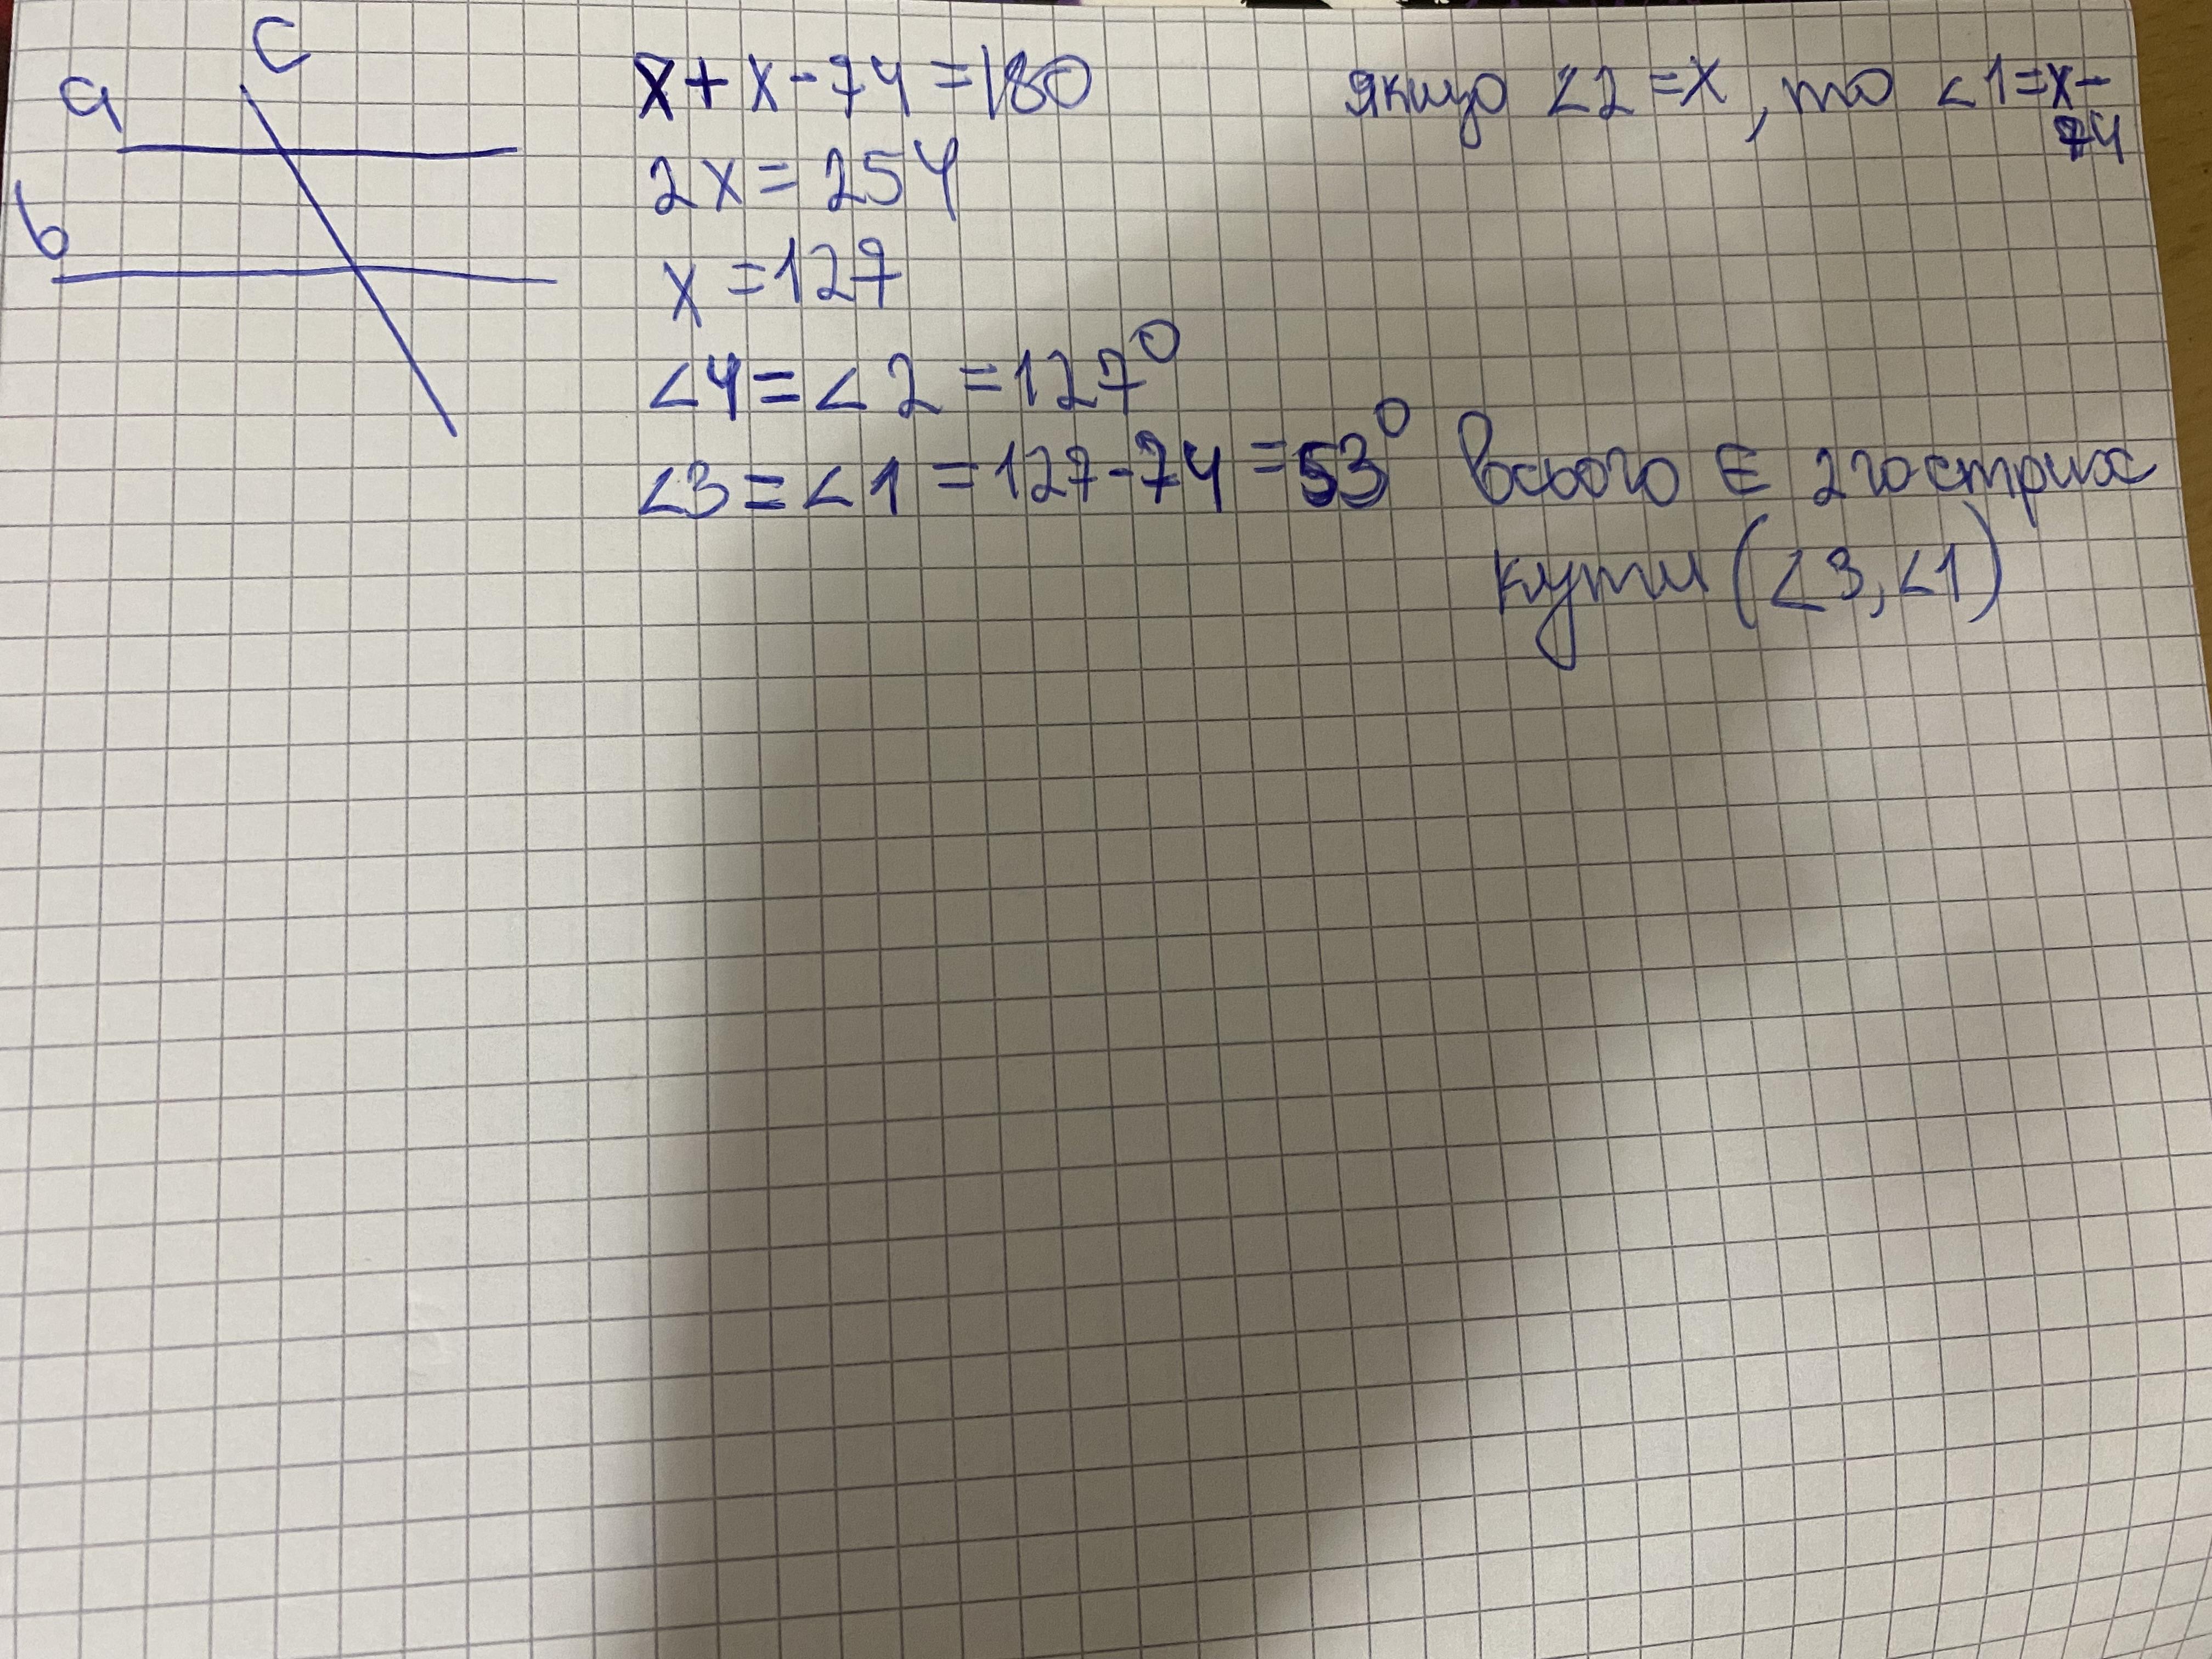 c
a
b
x + x - 74 = 180
2x = 254
x = 127
∠4 = ∠2 = 127°
∠3 = ∠1 = 127 - 74 = 53°
якщо ∠2 = x, то ∠1 = x -
74
всього є 2 гострих
кути (∠3, ∠1)